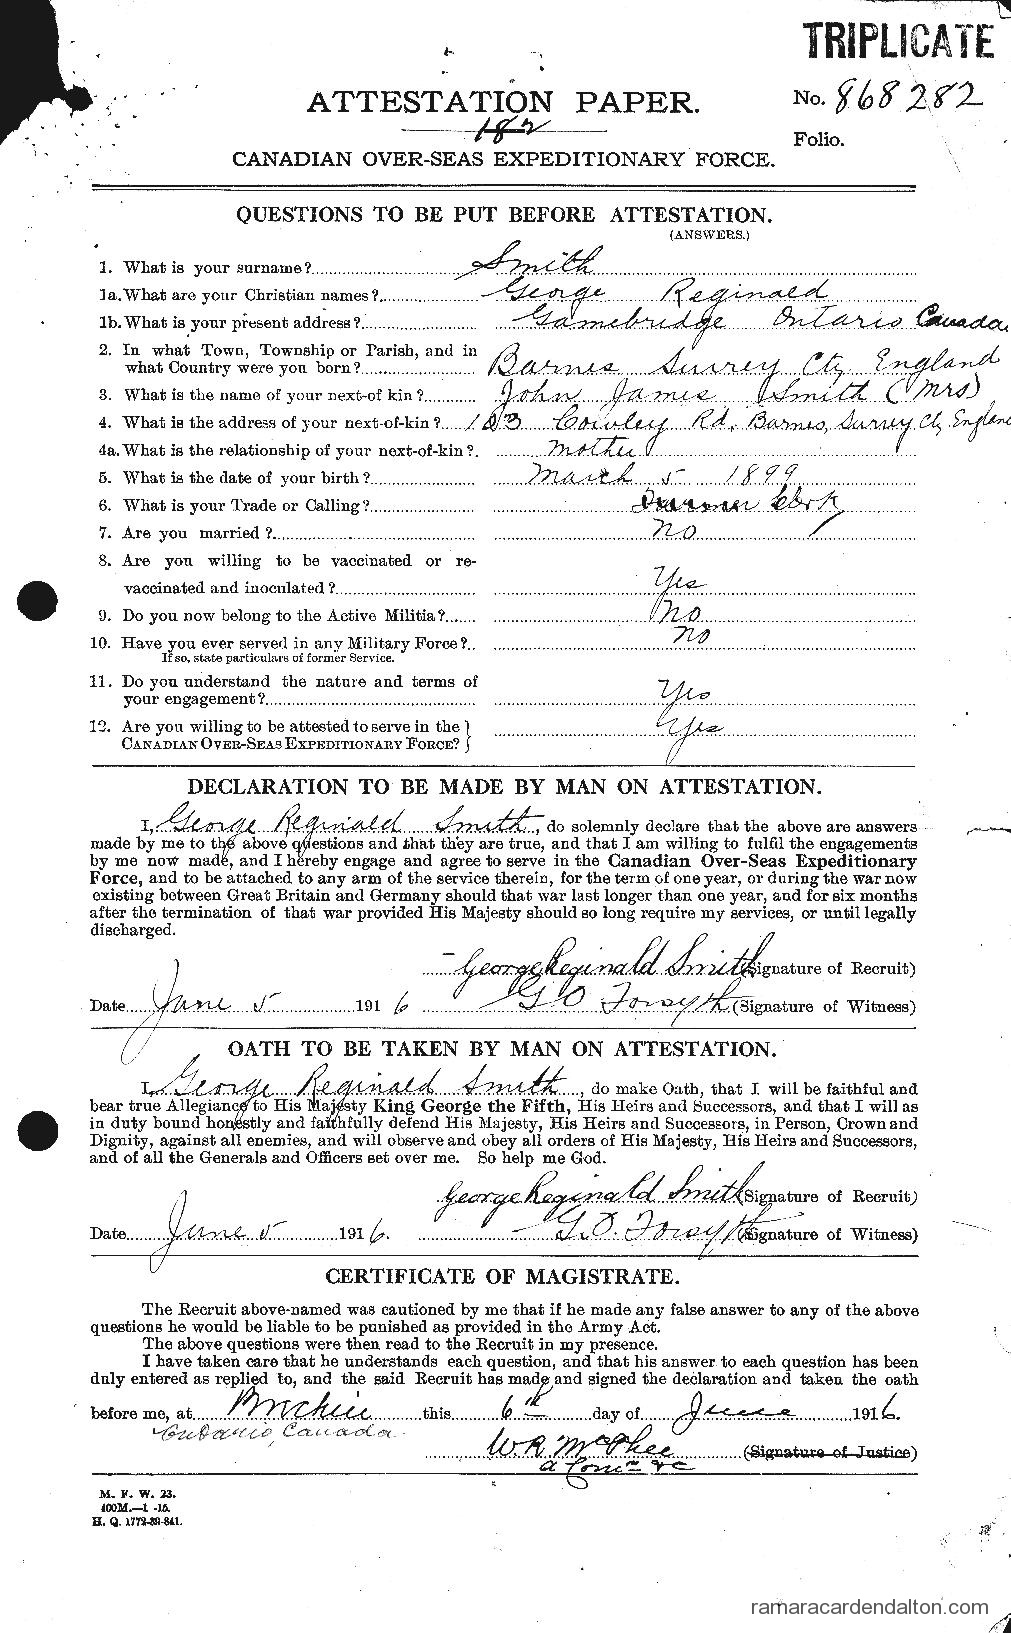 TRIPLICATE
ATTESTATION PAPER.
No. 868282
182
Folio.
CANADIAN OVER-SEAS EXPEDITIONARY FORCE.
QUESTIONS TO BE PUT BEFORE ATTESTATION.
(ANSWERS.)
1. What is your surname? Smith
1a. What are your Christian names? George Reginald
1b. What is your present address? Gamebridge Ontario Canada
2. In what Town, Township or Parish, and in
what Country were you born? Barnes Surrey Cty England
3. What is the name of your next-of kin? John James Smith (Mrs)
4. What is the address of your next-of-kin? 183 Cowley Rd. Barnes, Surrey Cty England
4a. What is the relationship of your next-of-kin? mother
5. What is the date of your birth? March 5 1899
6. What is your Trade or Calling? Clerk
7. Are you married? No
8. Are you willing to be vaccinated or re-
vaccinated and inoculated? Yes
9. Do you now belong to the Active Militia? No
10. Have you ever served in any Military Force? No
If so, state particulars of former Service.
11. Do you understand the nature and terms of
your engagement? Yes
12. Are you willing to be attested to serve in the
CANADIAN OVER-SEAS EXPEDITIONARY FORCE? Yes
DECLARATION TO BE MADE BY MAN ON ATTESTATION.
I, George Reginald Smith, do solemnly declare that the above are answers
made by me to the above questions and that they are true, and that I am willing to fulfil the engagements
by me now made, and I hereby engage and agree to serve in the Canadian Over-Seas Expeditionary
Force, and to be attached to any arm of the service therein, for the term of one year, or during the war now
existing between Great Britain and Germany should that war last longer than one year, and for six months
after the termination of that war provided His Majesty should so long require my services, or until legally
discharged.
George Reginald Smith (Signature of Recruit)
Date June 5 1916 G O Forsyth (Signature of Witness)
OATH TO BE TAKEN BY MAN ON ATTESTATION.
I, George Reginald Smith, do make Oath, that I will be faithful and
bear true Allegiance to His Majesty King George the Fifth, His Heirs and Successors, and that I will as
in duty bound honestly and faithfully defend His Majesty, His Heirs and Successors, in Person, Crown and
Dignity, against all enemies, and will observe and obey all orders of His Majesty, His Heirs and Successors,
and of all the Generals and Officers set over me. So help me God.
George Reginald Smith (Signature of Recruit)
Date June 5 1916. G.O. Forsyth (Signature of Witness)
CERTIFICATE OF MAGISTRATE.
The Recruit above-named was cautioned by me that if he made any false answer to any of the above
questions he would be liable to be punished as provided in the Army Act.
The above questions were then read to the Recruit in my presence.
I have taken care that he understands each question, and that his answer to each question has been
duly entered as replied to, and the said Recruit has made and signed the declaration and taken the oath
before me, at Brechin this 6th day of June 1916.
Ontario, Canada
W.R. McPhee (Signature of Justice)
a Comr &c
M. F. W. 23.
400M.—1 -15.
H. Q. 1772-39-841.
ramaracardendalton.com